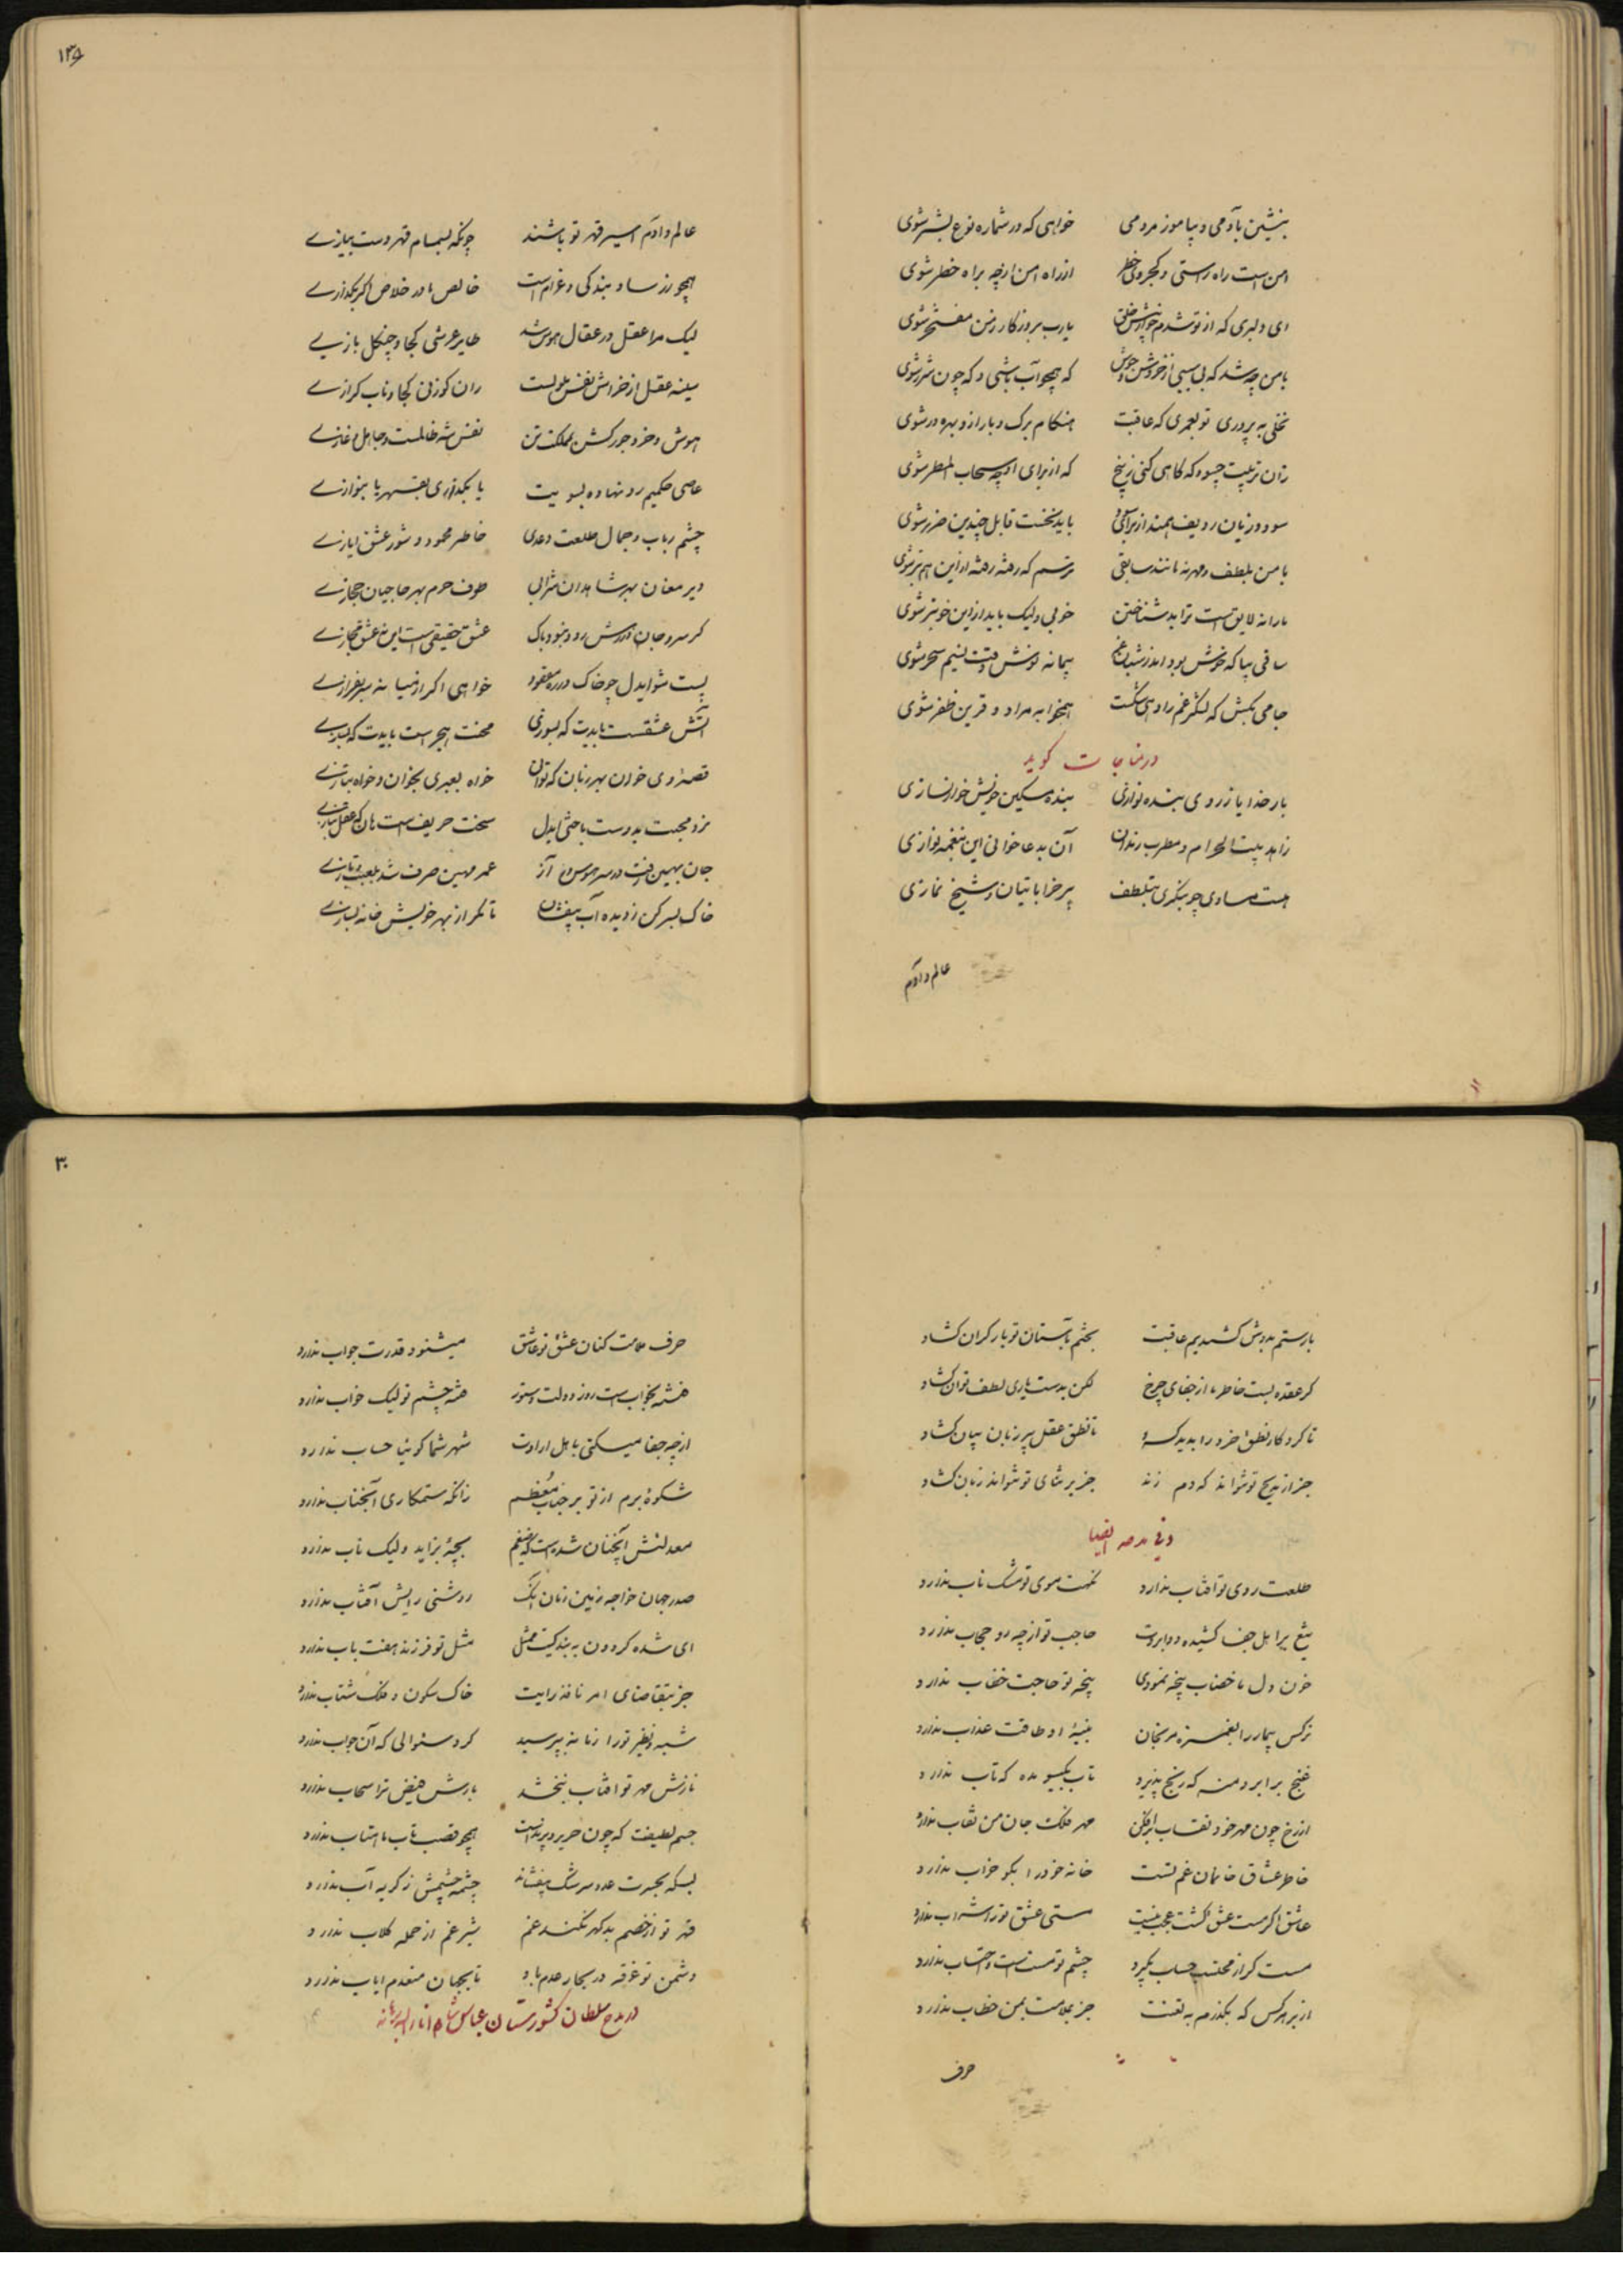 بنشین بآدمی و بیاموز مردمی خواهی که در شماره نوع بشر شوی
امن است راه راستی و کجروی خطر از راه امن ازچه براه خطر شوی
ای دلبری که از تو شدم یارب بروزکار زمن مفتخر شوی
با من چه شد که بی سببی از خروش و جوش که همچو آب باشی و که چون شرر شوی
نخلی به پروری تو بعمری که عاقبت هنکام برک و بار ازو بهره ور شوی
زان تربیت چسود که کاهی کنی ز بیخ که از برای او چه سحاب المطر شوی
سود و زیان ردیف همند از برای باید نخست قابل چندین ضرر شوی
با من بلطف و مهر نه مانند سابقی ترسم که رفته رفته ازاین هم بتر شوی
ما را نه لایق است ترا بد شناختن خوبی ولیک باید ازاین خوبتر شوی
ساقی بیا که خوش بود پیمانه نوش وقت نسیم سحر شوی
جامی بکش که لشکر غم را دهی شکست همخوابه مراد و قرین ظفر شوی
در مناجات کوید
بار خدایا ز روی بنده نوازی بنده مسکین خویش خوار نسازی
زاهد بیت الحرام و مطرب رندان آن بدعا خوانی این بنغمه نوازی
هست مساوی چو بنکری بتلطف پیر خراباتیان و شیخ نمازی
عالم و آدم
۱۳۵
عالم و آدم اسیر قهر تو باشند چونکه بسام قهر دست بیازی
همچو زر ساو بندکی و غرام است خالص ما در خلاص اکر بکدازی
لیک مرا عقل در عقال هوس شد طایر عرشی کجا و چنکل بازی
سینه عقل از خراش نفس ملولست ران کوزن کجا و ناب کرازی
هوش و خرد جورکش بمملکت تن نفس شه ظالمست و جاهل و غازی
عاصی حکمیم رو نهاده بسویت یا بکدازی بقهر یا بنوازی
چشم رباب و جمال طلعت دعدی خاطر محمود و شور عشق ایازی
دیر مغان بهر شاهدان شرابی طوف حرم بهر حاجیان حجازی
کر سر و جان رود نبود باک عشق حقیقی است این نه عشق مجازی
پست شو ایدل چو خاک در ره مقصود خواهی اکر از میانه سر بفرازی
آتش عشقست بایدت که بسوزی محنت هجر است بایدت که بسازی
قصه وی خوان بهر زبان که توان خواه بعبری بخوان و خواه بتازی
نرد محبت بدوست باختی ایدل سخت حریف است هان که عقل نبازی
جان بهین رفت در سر هوس و آز عمر مهین صرف شد بلعب و ببازی
خاک بسر کن ز دیده آب بیفشان تا مکر از بهر خویش خانه بسازی
بار ستم بدوش کشیدیم عاقبت بختم بآستان تو بار کران کشاد
کر عقده بست خاطر ما از جفای چرخ لکن بدست یاری لطف توان کشاد
تا کرد کار نطق خرد را پدید تا نطق عقل پیر زبان بیان کشاد
جز از مدیح تو نتواند که دم زند جز بر ثنای تو نتواند زبان کشاد
و فی مدحه ایضا
طلعت روی تو آفتاب ندارد نکهت موی تو مشک ناب ندارد
تیغ بر اهل جفا کشیده دو ابروت حاجب تو ازچه رو حجاب ندارد
خون دل ما خضاب پنجه نمودی پنجه تو حاجت خضاب ندارد
نرکس بیمار را بغمزه مرنجان بنیه او طاقت عذاب ندارد
غنج بر ابرو منه که رنج پذیرد تاب بکیسو مده که تاب ندارد
از رخ چون مهر خود نقاب برافکن مهر فلک جان من نقاب ندارد
خاطر عشاق خانمان غم تست خانه خود را بکو خراب ندارد
عاشق اکر مست عشق کشت عجب نیست مستی عشق تو را شراب ندارد
مست کر از محتسب حساب بکیرد چشم تو مست است و احتساب ندارد
از بر هر کس که بکذرم به تعنت جز بملامت بمن خطاب ندارد
حرف
۳۰
حرف ملامت کنان عشق تو عاشق میشنود قدرت جواب ندارد
فتنه بخواب است روز دولت دستور فتنه چشم تو لیک خواب ندارد
ازچه جفا میکنی باهل ارادت شهر شما کوئیا حساب ندارد
شکوه برم از تو بر جناب معظم زانکه ستمکاری آنجناب ندارد
معدلتش آنچنان شده است که ضیغم بچه بزاید ولیک ناب ندارد
صدر جهان خواجه زمین و زمان آنک روشنی رایش آفتاب ندارد
ای شده کردون به بندکیت ممثل مثل تو فرزند هفت باب ندارد
جز بتقاضای امر نافذ رایت خاک سکون و فلک شتاب ندارد
شبه و نظیر تو را زمانه بپرسید کرد سئوالی که آن جواب ندارد
تابش مهر تو آفتاب نبخشد بارش فیض ترا سحاب ندارد
جسم لطیفت که چون حریر و پرند است همچو قصب تاب ماهتاب ندارد
بسکه بحسرت عدو سرشک بیفشاند چشمه چشمش ز کریه آب ندارد
قهر تو از خصم بدکهر نکند غم شیر غم از حمله کلاب ندارد
دشمن تو غرقه در بحار عدم باد تا بجهان منعدم ایاب ندارد
در مدح سلطان کشورستان عباس شاه انار الله برهانه